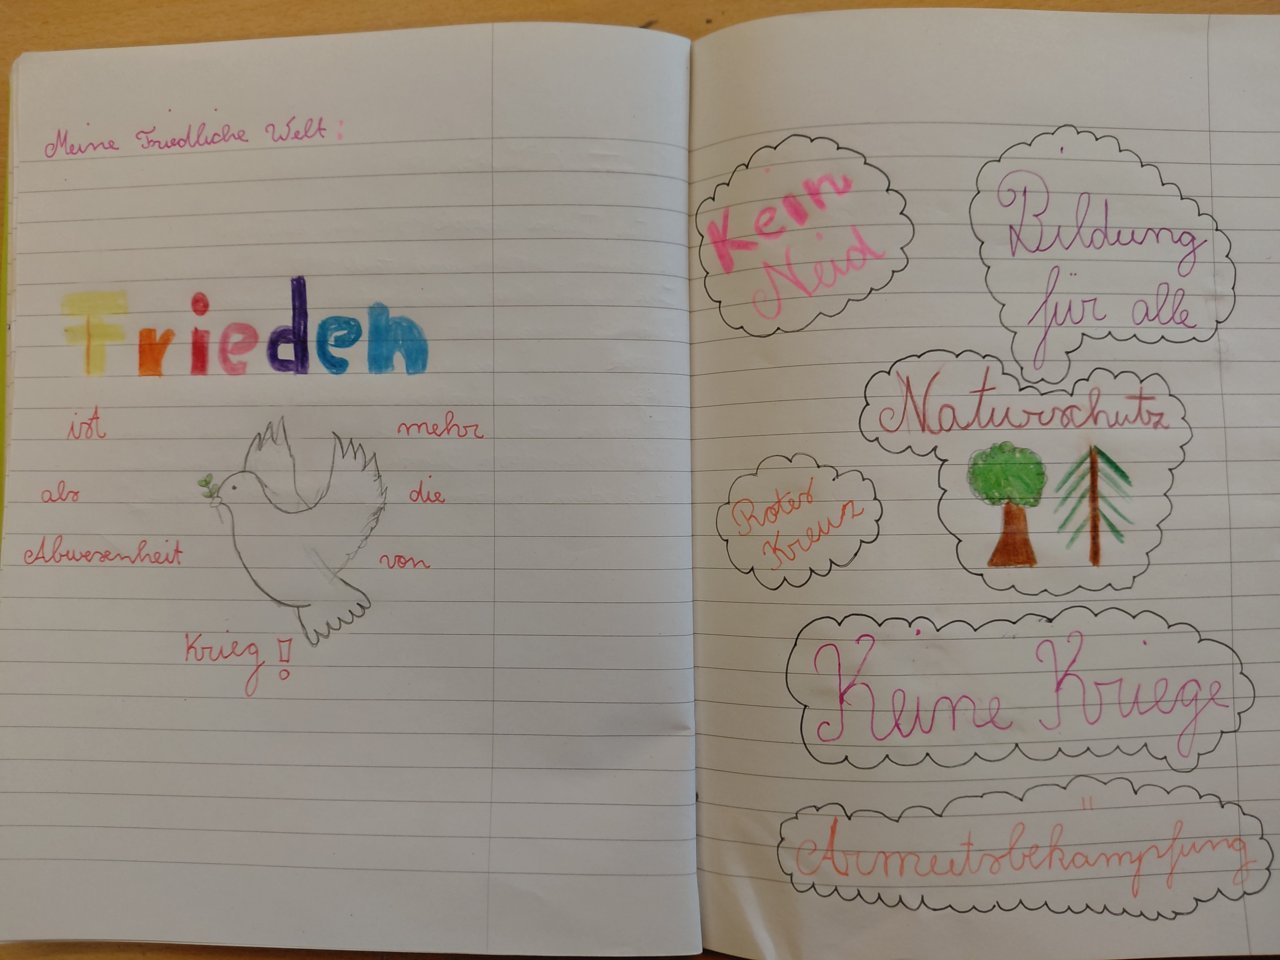 Meine Friedliche Welt:
Frieden
ist mehr
als die
Abwesenheit von
Krieg!
Kein
Neid
Bildung
für alle
Naturschutz
Rotes
Kreuz
Keine Kriege
Armutsbekämpfung